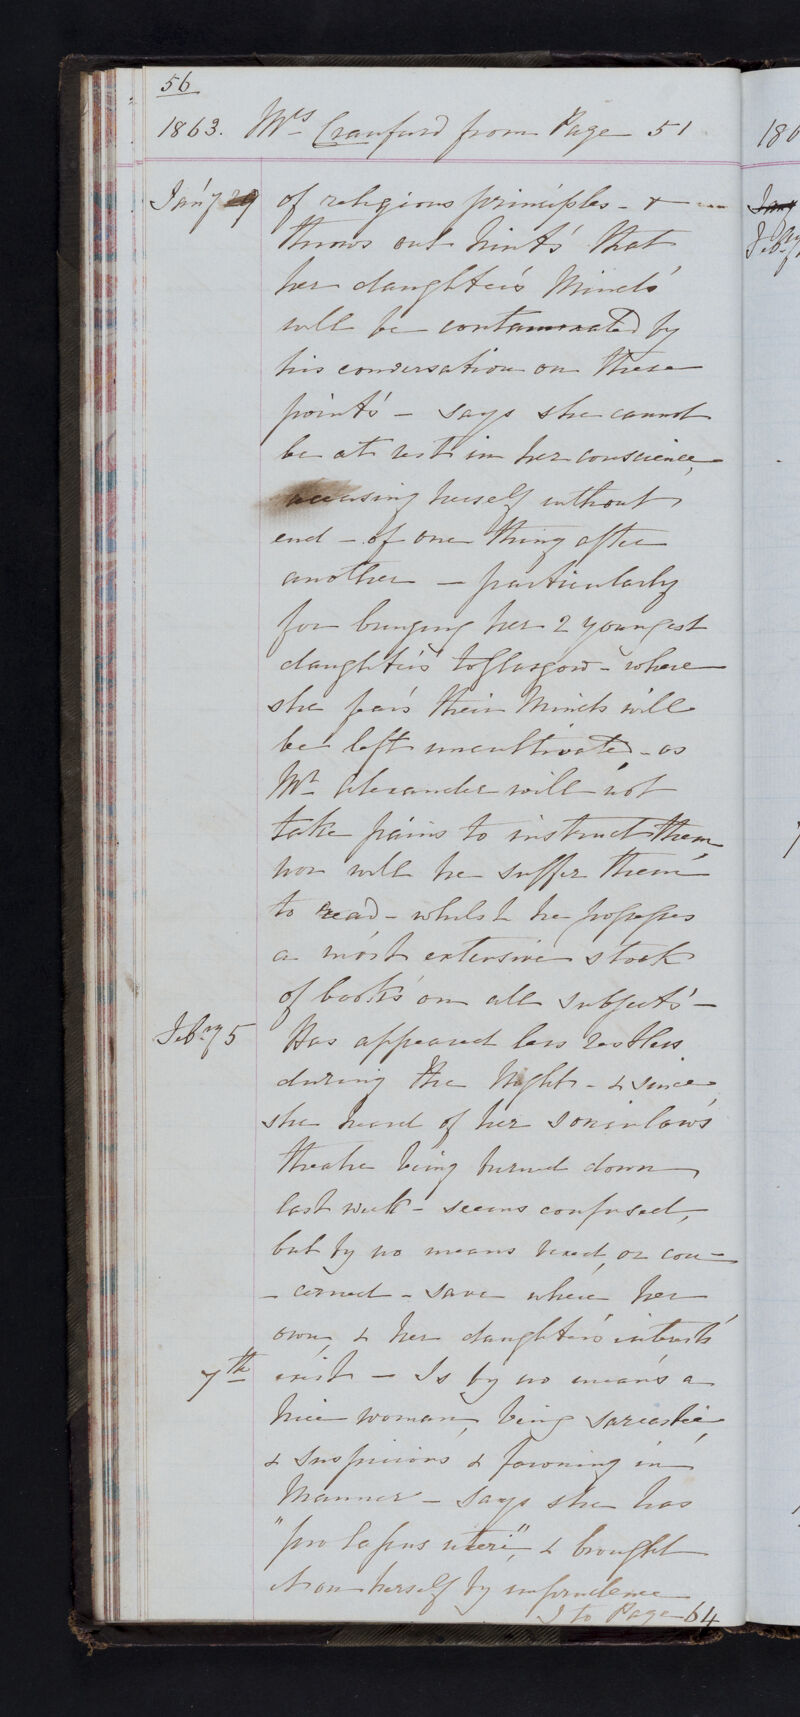 56
1863. Mrs Craufurd from Page 51
Jan'y 29 of religious principles - &
throws out hints that
her daughter's Minds
will be contaminated by
his conversation on these
points - says she cannot
be at rest in her conscience,
accusing herself without
end - of one thing after
another - particularly
for bringing her 2 youngest
daughters to Glasgow - where
she fears their Minds will
be left uncultivated - as
Mr Alexander will not
take pains to instruct them,
nor will he suffer them
to read - whilst he possesses
a most extensive stock
of books on all subjects -
Feb'ry 5 Has appeared less restless
during the Night - & since
she heard of her son in law's
theatre being burned down
last week - seems confused,
but by no means vexed, or con-
- cerned - save where her
own, & her daughters interests
7th exist - Is by no means a
nice woman, being sarcastic,
& suspicious & fawning in
Manner - says she has
"prolapsus uteri", & brought
it on herself by imprudence
to Page 64
180
Jany
Feb'ry